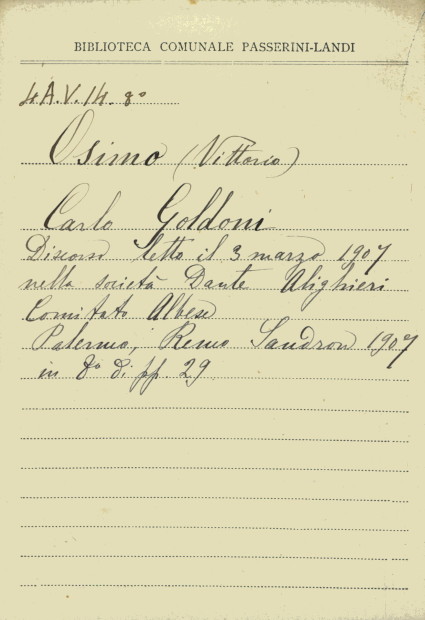 BIBLIOTECA COMUNALE PASSERINI-LANDI
4.A.V.14.8º
Osimo (Vittorio)
Carlo Goldoni
Discorso letto il 3 marzo 1907
nella società Dante Alighieri
Comitato Albese
Palermo, Remo Sandron 1907
in 8º di pp 29